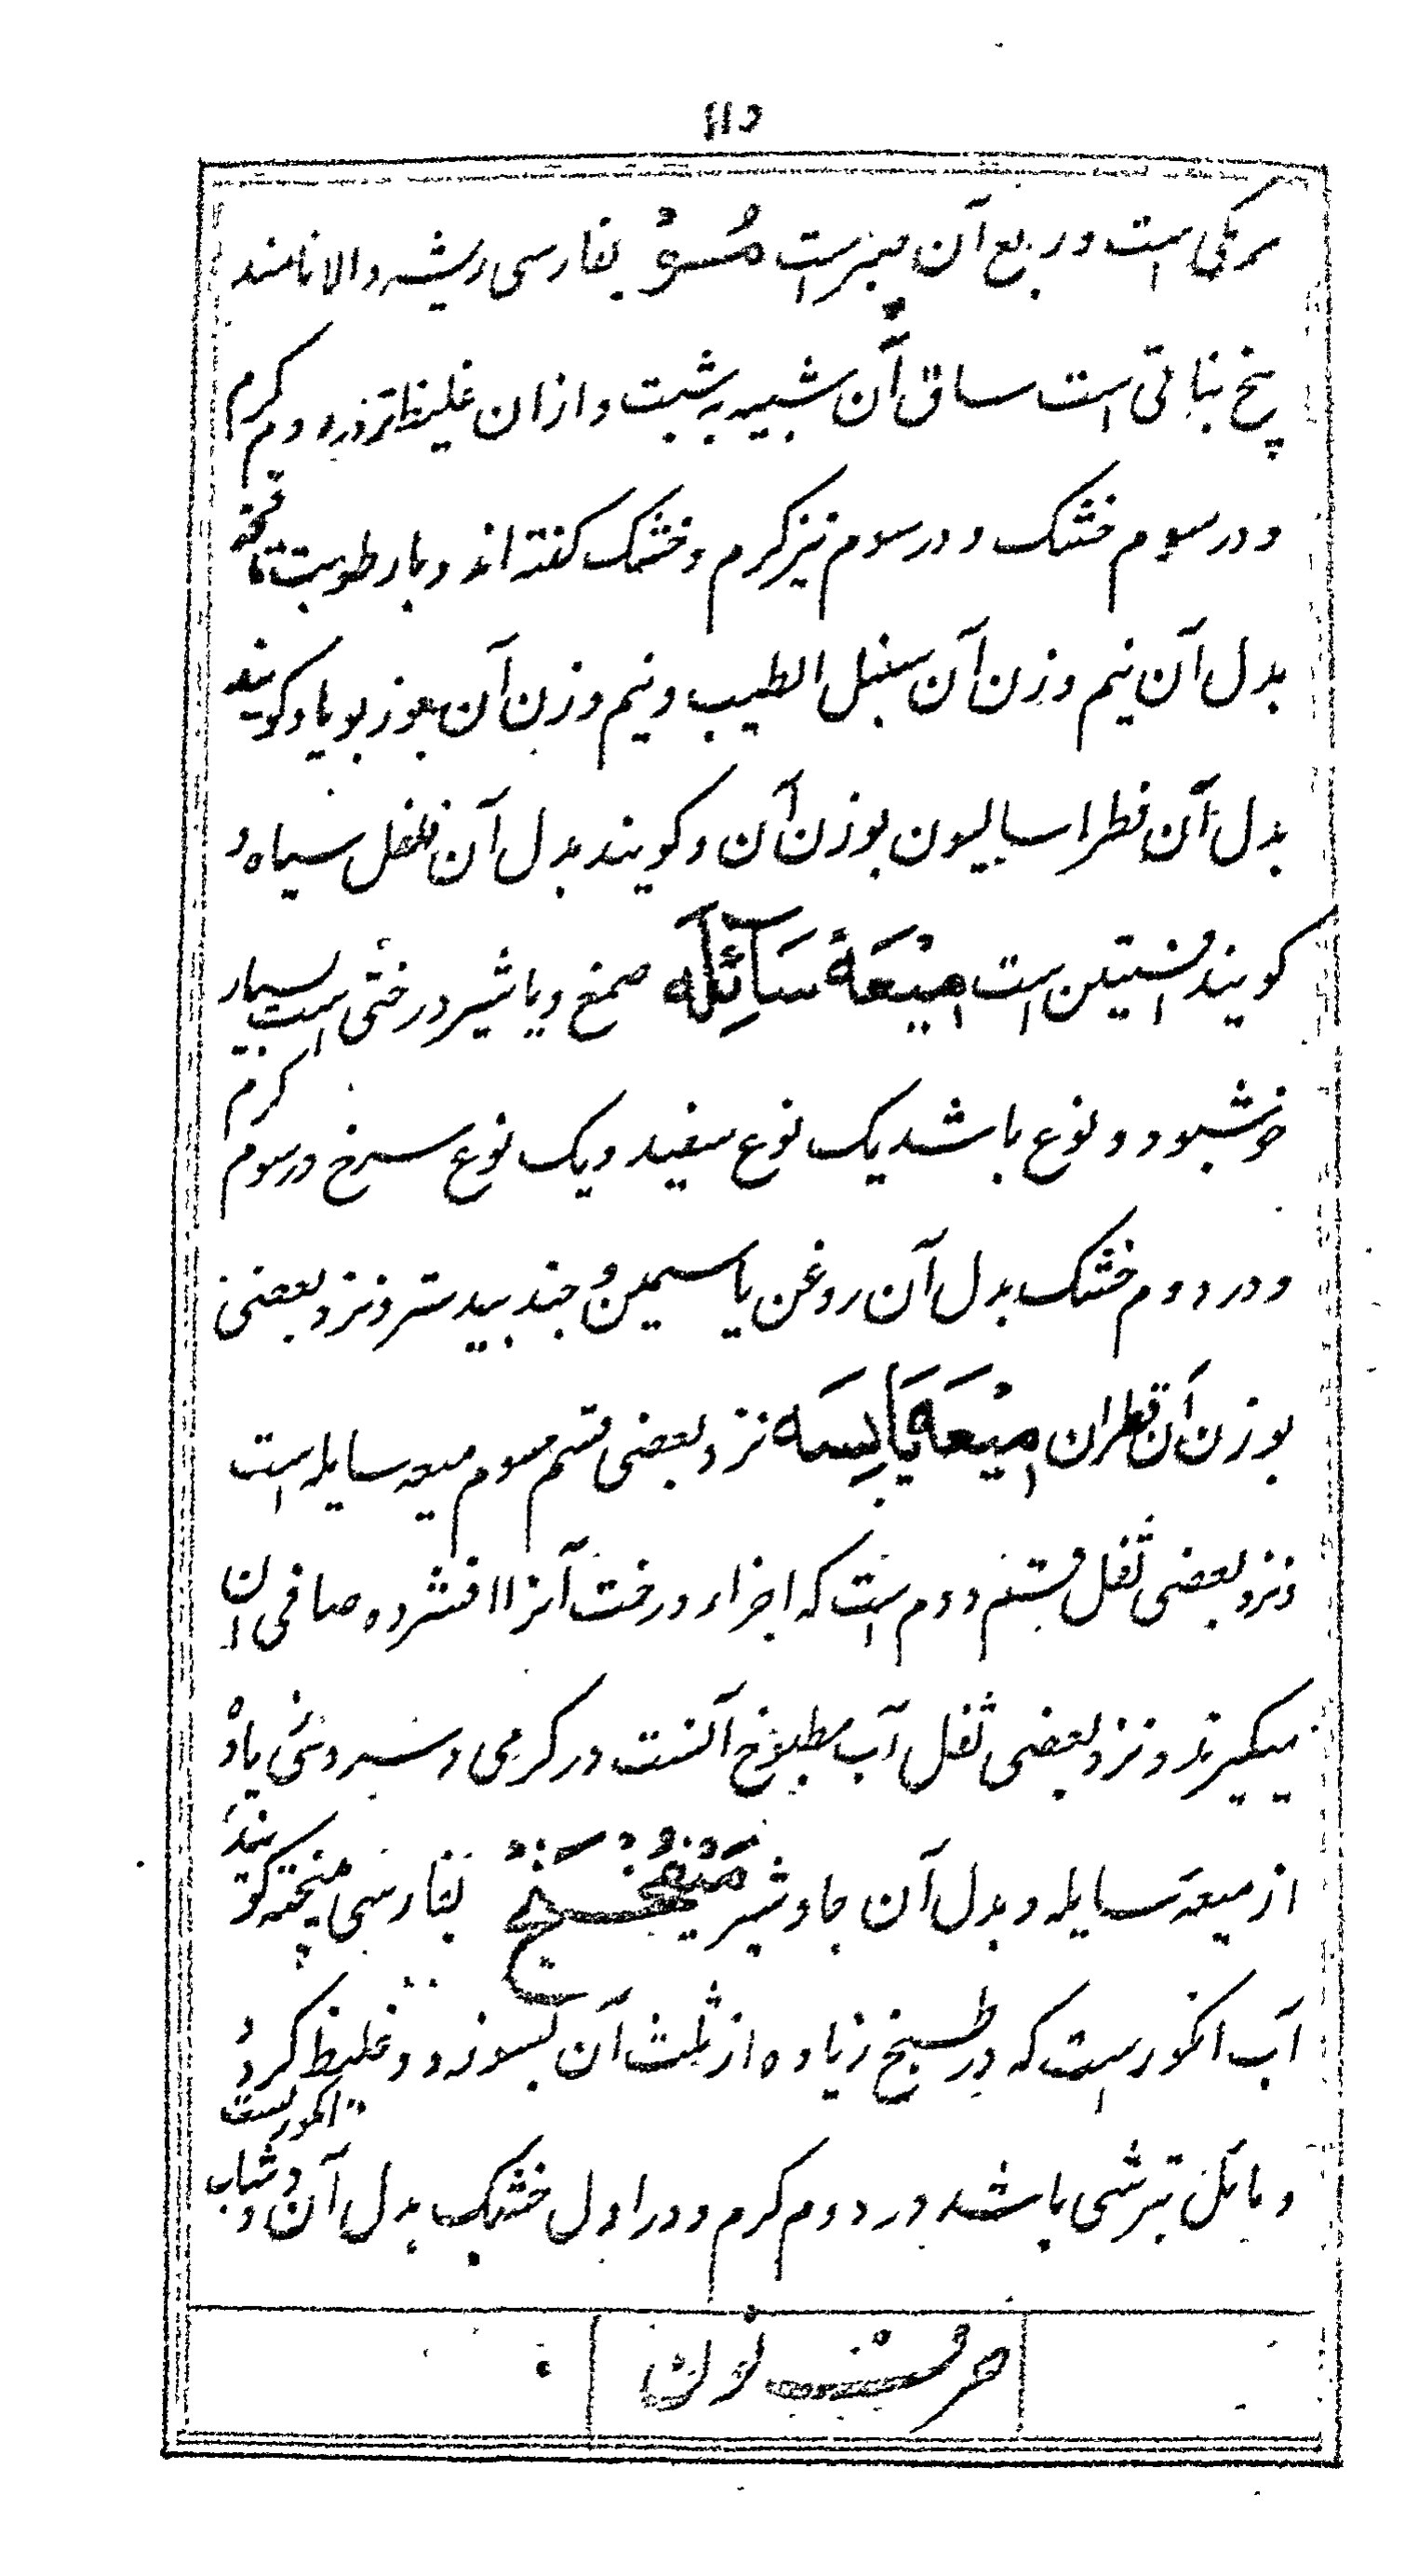 ۱۱۵
مرکی است و ربع آن پنیر است مُــو بفارسی ریشه والا نامند
بیخ نباتی است ساق آن شبیه به شبت و ازان غلیظتر در دوم کرم
و در سوم خشک و در سوم نیز کرم و خشک کفته اند و با رطوبت
بدل آن نیم وزن آن سنبل الطیب و نیم وزن آن جوز بویا و کویند
بدل آن فطراسالیون بوزن آن و کویند بدل آن فلفل سیاه و
کویند افسنتین است مِیْعَهٔ سَآئِلَه صمغ و یا شیر درختی است بسیار
خوشبو دو نوع باشد یک نوع سفید و یک نوع سرخ در سوم کرم
و در دوم خشک بدل آن روغن یاسمین و جند بیدستر و نزد بعضی
بوزن آن قطران مِیْعَهٔ یَابِسَه نزد بعضی قسم سوم میعه سایله است
و نزد بعضی ثفل قسم دوم است که اجزاء درخت آنرا افشرده صافی آن
میکیرند و نزد بعضی ثفل آب مطبوخ آنست در کرمی و سردی زیاده
از میعهٔ سایله و بدل آن جاوشیر مَیْفُخْتَجْ بفارسی میپخته کویند
آب انکور است که در طبخ زیاده از ثلث آن بسوزد و غلیظ کردد و
و مائل بترشی باشد در دوم کرم و در اول خشک بدل آن دوشاب انکوریست
حرف نون